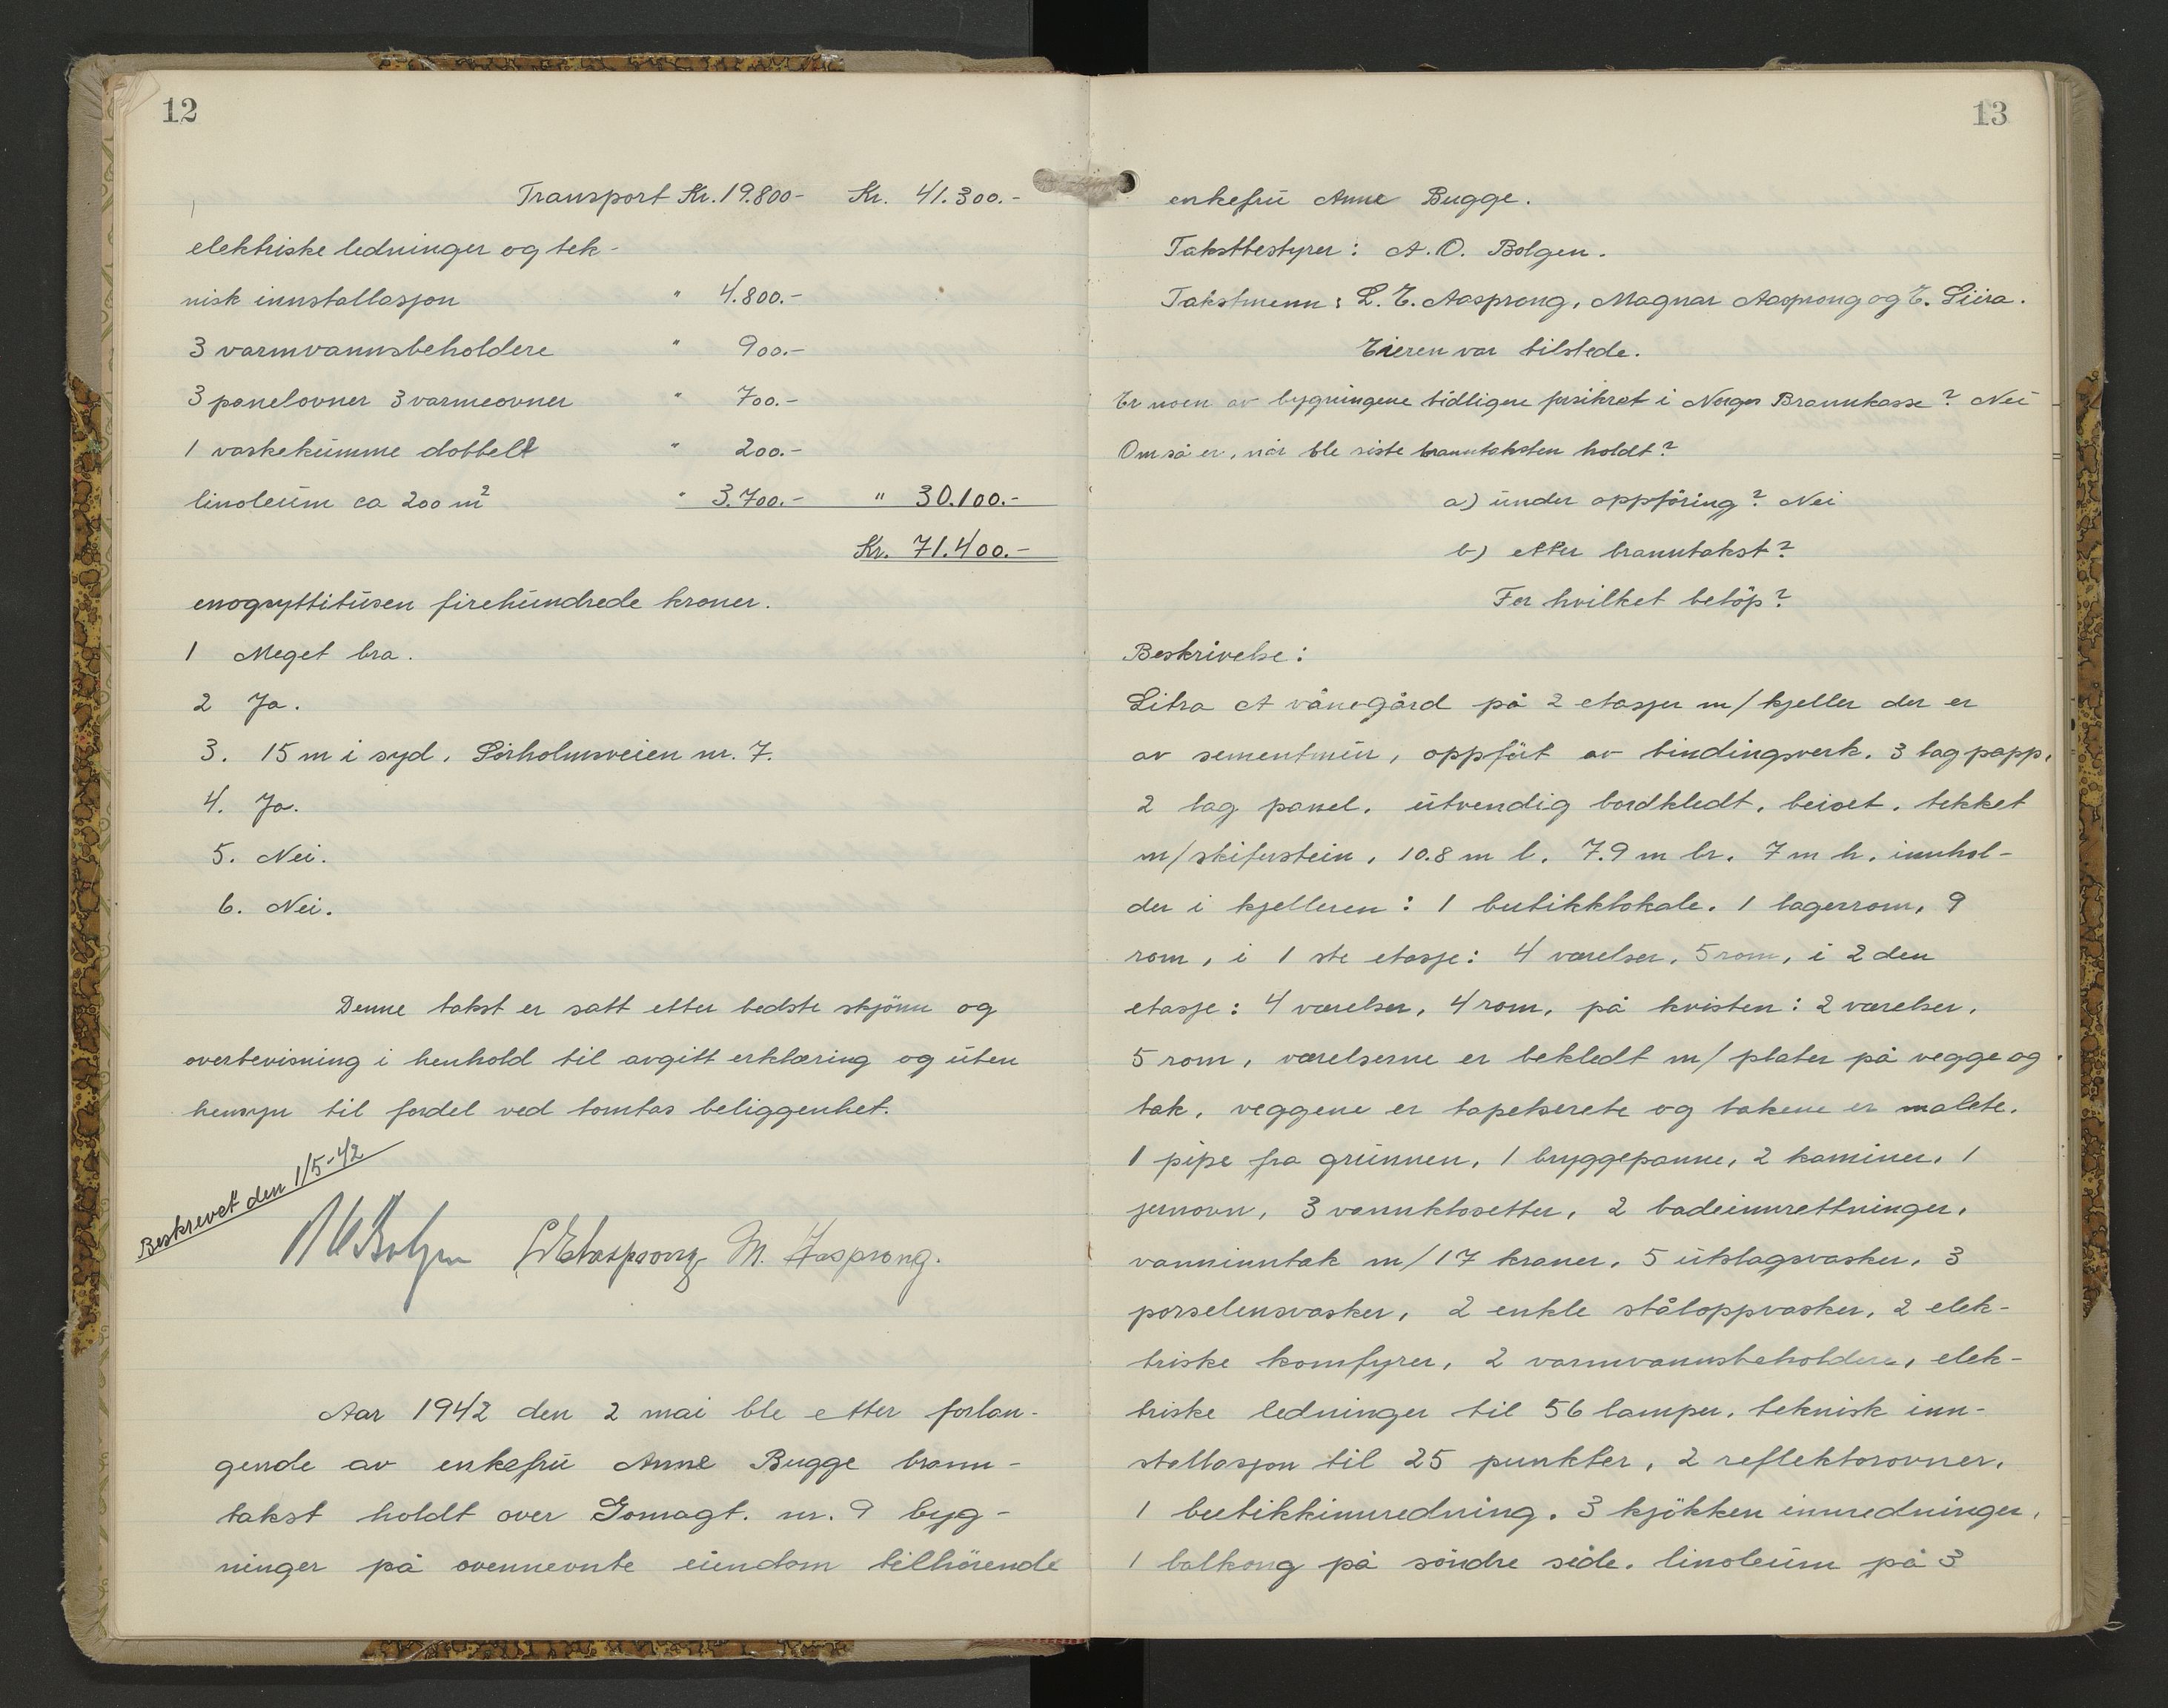 12
Transport Kr. 19.800- Kr. 41.300.-
elektriske ledninger og tek-
nisk innstallasjon " 4.800.-
3 varmvannsbeholdere " 900.-
3 panelovner 3 varmeovner " 700.-
1 vaskekumme dobbelt " 200.-
linoleum ca 200 m² " 3.700.- " 30.100.-
Kr. 71.400.-
enogsyttitusen firehundrede kroner.
1 Meget bra.
2 Ja.
3. 15 m i syd, Sørholmsveien nr. 7.
4. Ja.
5. Nei.
6. Nei.
Denne takst er satt etter bedste skjönn og
overbevisning i henhold til avgitt erklæring og uten
hensyn til fordel ved tomtas beliggenhet.
Beskrevet den 1/5-42
A O Bolgen L E Aasprong M. Aasprong.
Aar 1942 den 2 mai ble etter forlan-
gende av enkefru Anne Bugge brann-
takst holdt over Gomagt. nr. 9 byg-
ninger på ovennevnte eiendom tilhörende
13
enkefru Anne Bugge.
Takstbestyrer: A. O. Bolgen.
Takstmenn: L. E. Aasprong, Magnar Aasprong og E. Siira.
Eieren var tilstede.
Er noen av bygningene tidligere forsikret i Norges Brannkasse? Nei
Om så er, når ble siste branntaksten holdt?
a) under oppföring? Nei
b) etter branntakst?
For hvilket belöp?
Beskrivelse:
Litra A vånegård på 2 etasjer m/kjeller der er
av sementmur, oppfört av bindingsverk, 3 lag papp,
2 lag panel, utvendig bordkledt, beiset, tekket
m/skiferstein, 10.8 m l. 7.9 m br. 7 m h. innhol-
der i kjelleren: 1 butikklokale, 1 lagerrom, 9
rom, i 1 ste etasje: 4 værelser, 5 rom, i 2 den
etasje: 4 værelser, 4 rom, på kvisten: 2 værelser,
5 rom, værelserne er bekledt m/plater på vegge og
tak, veggene er tapetserete og takene er malete.
1 pipe fra grunnen, 1 bryggepanne, 2 kaminer, 1
jernovn, 3 vannklosetter, 2 badeinnrettninger,
vanninntak m/17 kraner, 5 utslagsvasker, 3
porselensvasker, 2 enkle ståloppvasker, 2 elek-
triske komfyrer, 2 varmvannsbeholdere, elek-
triske ledninger til 56 lamper, teknisk inn-
stallasjon til 25 punkter, 2 reflektorovner,
1 butikkinnredning, 3 kjökken innredninger,
1 balkong på söndre side, linoleum på 3